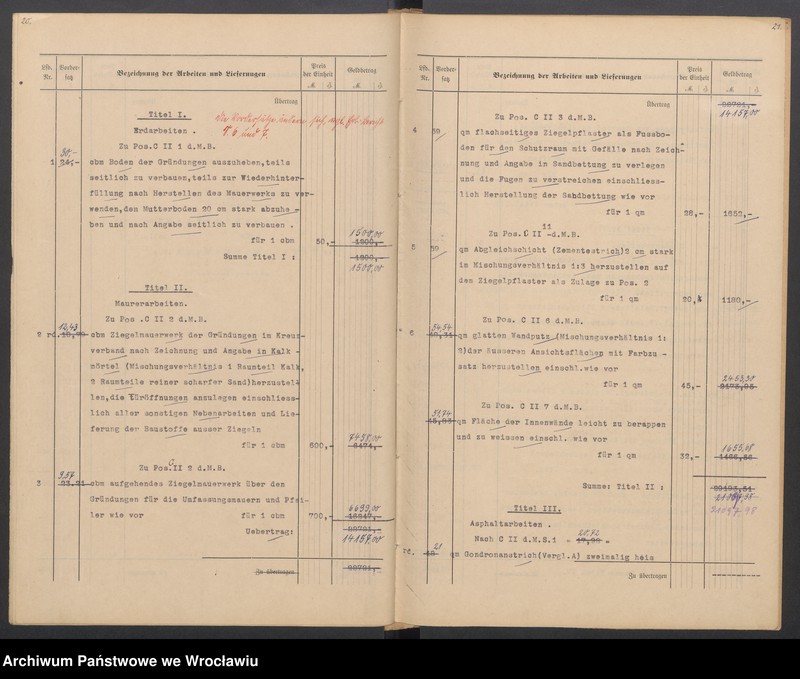 20.
Lfd. Nr.
Vordersatz
Bezeichnung der Arbeiten und Lieferungen
Preis der Einheit
M.
Geldbetrag
M.
Übertrag
Titel I.
Erdarbeiten .
Zu Pos.C II 1 d.M.B.
30.-
1 24,- cbm Boden der Gründungen auszuheben,teils
seitlich zu verbauen,teils zur Wiederhinter-
füllung nach Herstellen des Mauerwerks zu ver-
wenden,den Mutterboden 20 cm stark abzuhe -
ben und nach Angabe seitlich zu verbauen .
1500.00
für 1 cbm 50,- 1200,-
Summe Titel I : 1200,-
1500.00
Titel II.
Maurerarbeiten.
Zu Pos .C II 2 d.M.B.
12,43
2 rd. cbm Ziegelmauerwerk der Gründungen im Kreuz-
verband nach Zeichnung und Angabe in Kalk -
mörtel (Mischungsverhältnis 1 Raumteil Kalk,
2 Raumteile reiner scharfer Sand)herzustel-
len,die Türöffnungen anzulegen einschliess-
lich aller sonstigen Nebenarbeiten und Lie-
ferung der Baustoffe ausser Ziegeln
7458,00
für 1 cbm 600,- 6474,-
Zu Pos.C II 2 d.M.B.
9,57
3 cbm aufgehendes Ziegelmauerwerk über den
Gründungen für die Umfassungsmauern und Pfei-
6699,00
ler wie vor für 1 cbm 700,-
Uebertrag:
14157,00
Zu übertragen
21.
Lfd. Nr.
Vordersatz
Bezeichnung der Arbeiten und Lieferungen
Preis der Einheit
M.
Geldbetrag
M.
Übertrag
14157,00
Zu Pos. C II 3 d.M.B.
4 59 qm flachseitiges Ziegelpflaster als Fussbo-
den für den Schutzraum mit Gefälle nach Zeich-
nung und Angabe in Sandbettung zu verlegen
und die Fugen zu verstreichen einschliess-
lich Herstellung der Sandbettung wie vor
für 1 qm 28,- 1652,-
11
Zu Pos. C II -d.M.B.
5 59 qm Abgleichschicht (Zementestrich)2 cm stark
im Mischungsverhältnis 1:3 herzustellen auf
dem Ziegelpflaster als Zulage zu Pos. 2
für 1 qm 20,- 1180,-
Zu Pos. C II 6 d.M.B.
54,54
6 qm glatten Wandputz (Mischungsverhältnis 1:
2)der äusseren Ansichtsflächen mit Farbzu -
satz herzustellen einschl.wie vor
2453,30
für 1 qm 45,-
Zu Pos. C II 7 d.M.B.
51,74
qm Fläche der Innenwände leicht zu berappen
und zu weissen einschl. wie vor
1655,68
für 1 qm 32,-
Summe: Titel II :
21097,98
Titel III.
Asphaltarbeiten .
20,72
Nach C II d.M.S.1 =
21
rd. qm Gondronanstrich(Vergl.A) zweimalig heis
Zu übertragen
Archiwum Państwowe we Wrocławiu